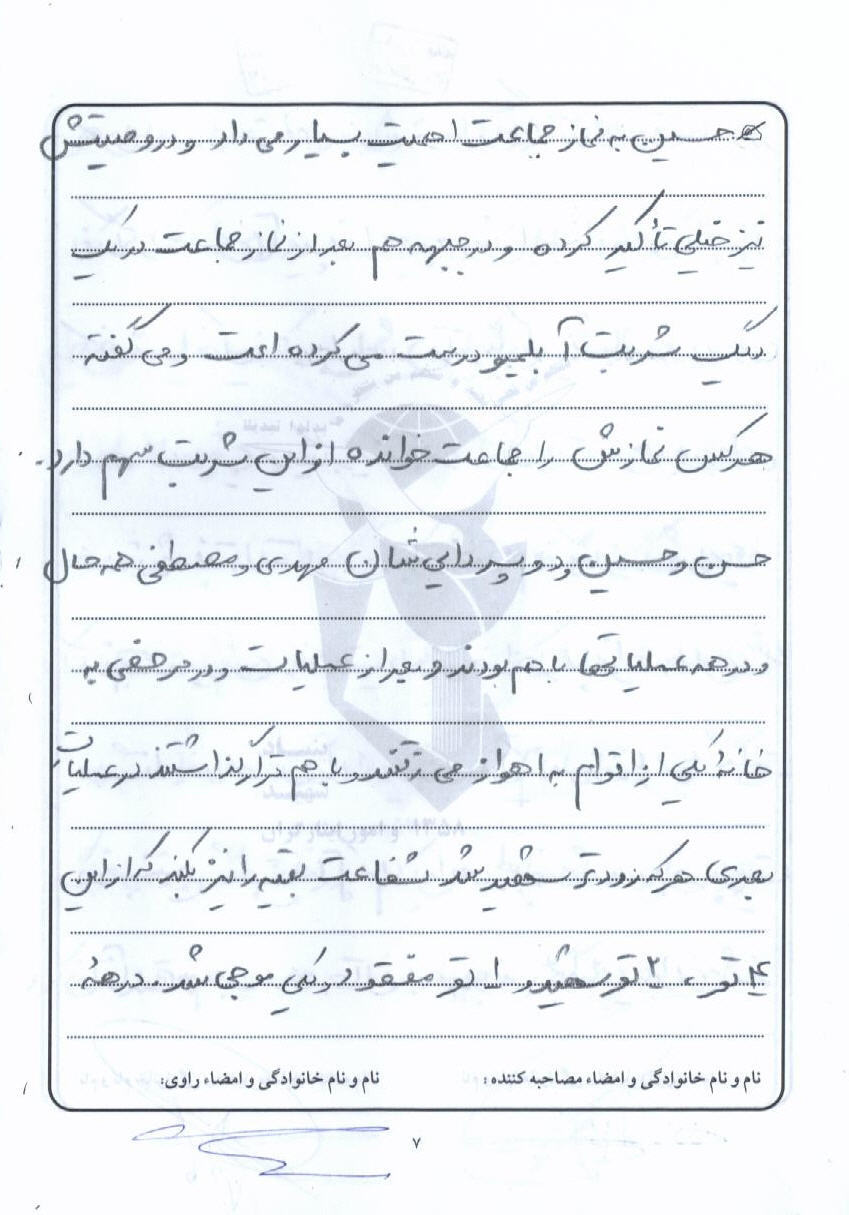 حسین به نماز جماعت اهمیت بسیار می داد و در وصیتش
نیز خیلی تأکید کرده و در جبهه هم بعد از نماز جماعت در یک
دیگ شربت آبلیمو درست می کرده است و می گفته
هر کس نمازش را جماعت خوانده از این شربت سهم دارد.
حسن و حسین و دو پسر دایی شان مهدی و مصطفی همه حال
و در همه عملیاتها با هم بودند و بعد از عملیات و در مرخصی به
خانهٔ یکی از اقوام به اهواز می رفتند و با هم قرار گذاشتند در عملیات
بعدی هر که زودتر شهید شد شفاعت بقیه را نیز بکند که از این
۴ نفر، ۲ نفر شهید و ۱ نفر مفقود و یکی موجی شد. در همهٔ
نام و نام خانوادگی و امضاء مصاحبه کننده : نام و نام خانوادگی و امضاء راوی:
۷